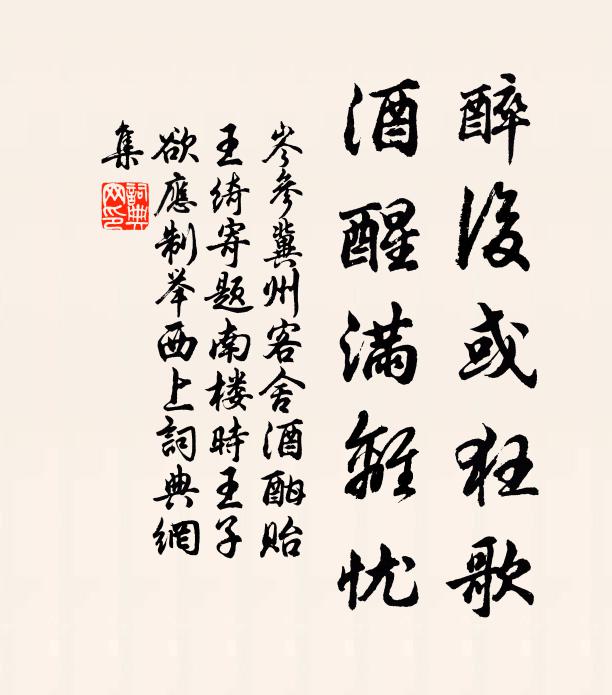 醉後或狂歌
酒醒滿離忧
岑參冀州客舍酒酣貽
王绮寄题南楼時王子
欲應制举西上詞典網
集
詞典
网印